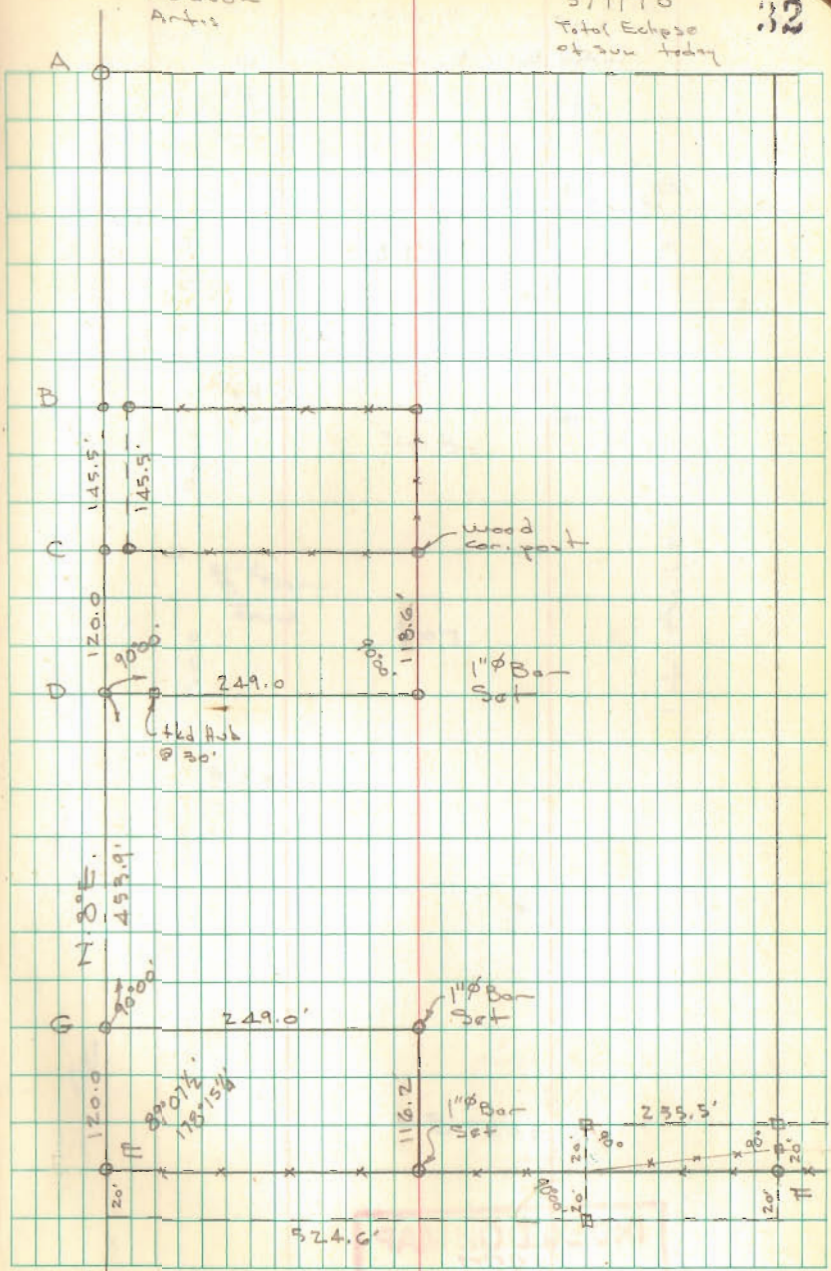 Artis
Total Eclipse
of sun today
32
A
B
145.5'
145.5'
C
wood
cor. post
120.0
90°00'
118.6'
90°00'
D
249.0
1"ϕ Bar
Set
tkd Hub
@ 30'
N. 8° E.
453.9'
G
90°00'
249.0'
1"ϕ Bar
Set
120.0
89°07½'
178°15'
116.2
1"ϕ Bar
Set
235.5'
20'
90°
90°
20'
20'
90°00'
20'
20'
524.6'